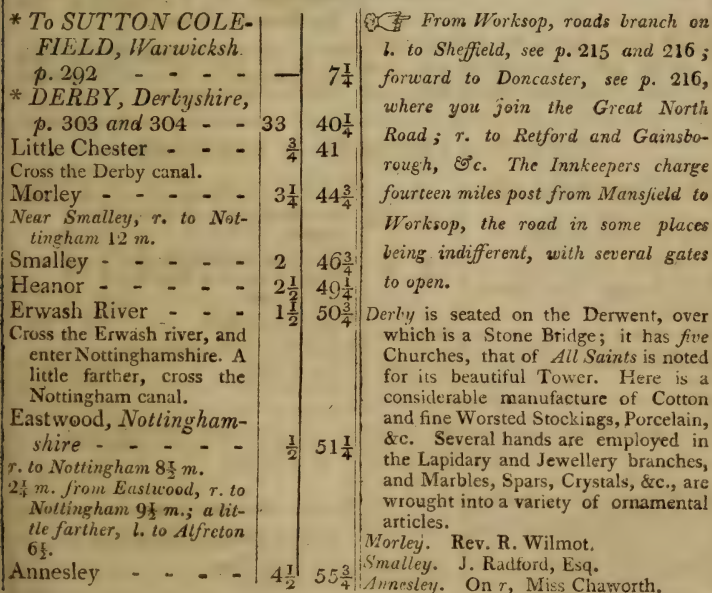 * To SUTTON COLE-
FIELD, Warwicksh.
p. 292 - - - - — 7¼
* DERBY, Derbyshire,
p. 303 and 304 - - 33 40¼
Little Chester - - - ¾ 41
Cross the Derby canal.
Morley - - - - - 3¼ 44¾
Near Smalley, r. to Not-
tingham 12 m.
Smalley - - - - - 2 46¾
Heanor - - - - - 2½ 49¼
Erwash River - - - 1½ 50¾
Cross the Erwash river, and
enter Nottinghamshire. A
little farther, cross the
Nottingham canal.
Eastwood, Nottingham-
shire - - - - - ½ 51¼
r. to Nottingham 8½ m.
2¼ m. from Eastwood, r. to
Nottingham 9½ m.; a lit-
tle farther, l. to Alfreton
6½.
Annesley - - - - 4½ 55¾
☞ From Worksop, roads branch on
l. to Sheffield, see p. 215 and 216;
forward to Doncaster, see p. 216,
where you join the Great North
Road; r. to Retford and Gainsbo-
rough, &c. The Innkeepers charge
fourteen miles post from Mansfield to
Worksop, the road in some places
being indifferent, with several gates
to open.
Derby is seated on the Derwent, over
which is a Stone Bridge; it has five
Churches, that of All Saints is noted
for its beautiful Tower. Here is a
considerable manufacture of Cotton
and fine Worsted Stockings, Porcelain,
&c. Several hands are employed in
the Lapidary and Jewellery branches,
and Marbles, Spars, Crystals, &c., are
wrought into a variety of ornamental
articles.
Morley. Rev. R. Wilmot.
Smalley. J. Radford, Esq.
Annesley. On r, Miss Chaworth.